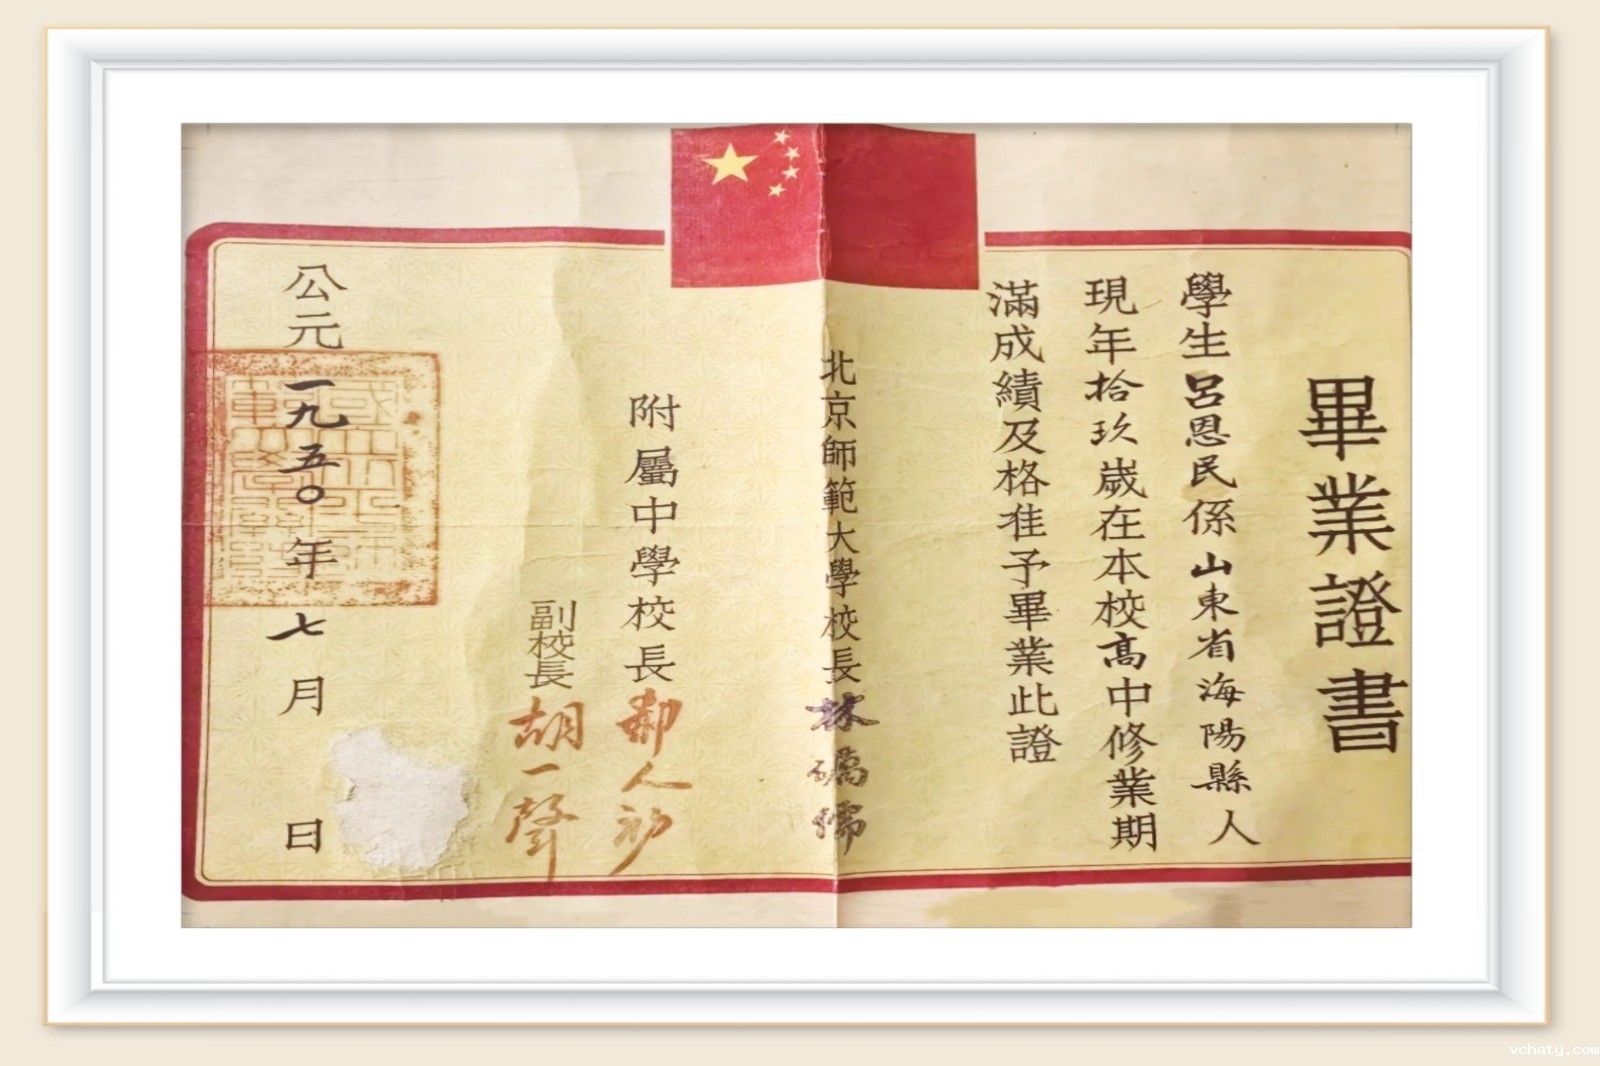 畢業證書
學生呂恩民係山東省海陽縣人
現年拾玖歲在本校高中修業期
滿成績及格准予畢業此證
北京師範大學校長林礪儒
附屬中學校長郝人初
副校長胡一聲
公元一九五〇年七月日
vchaty.com